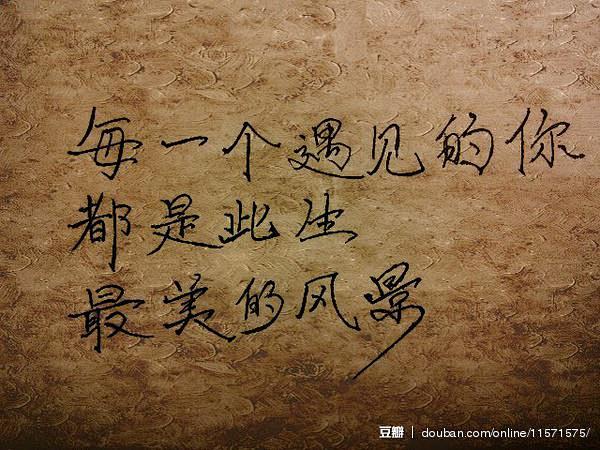 每一个遇见的你
都是此生
最美的风景
豆瓣 | douban.com/online/11571575/